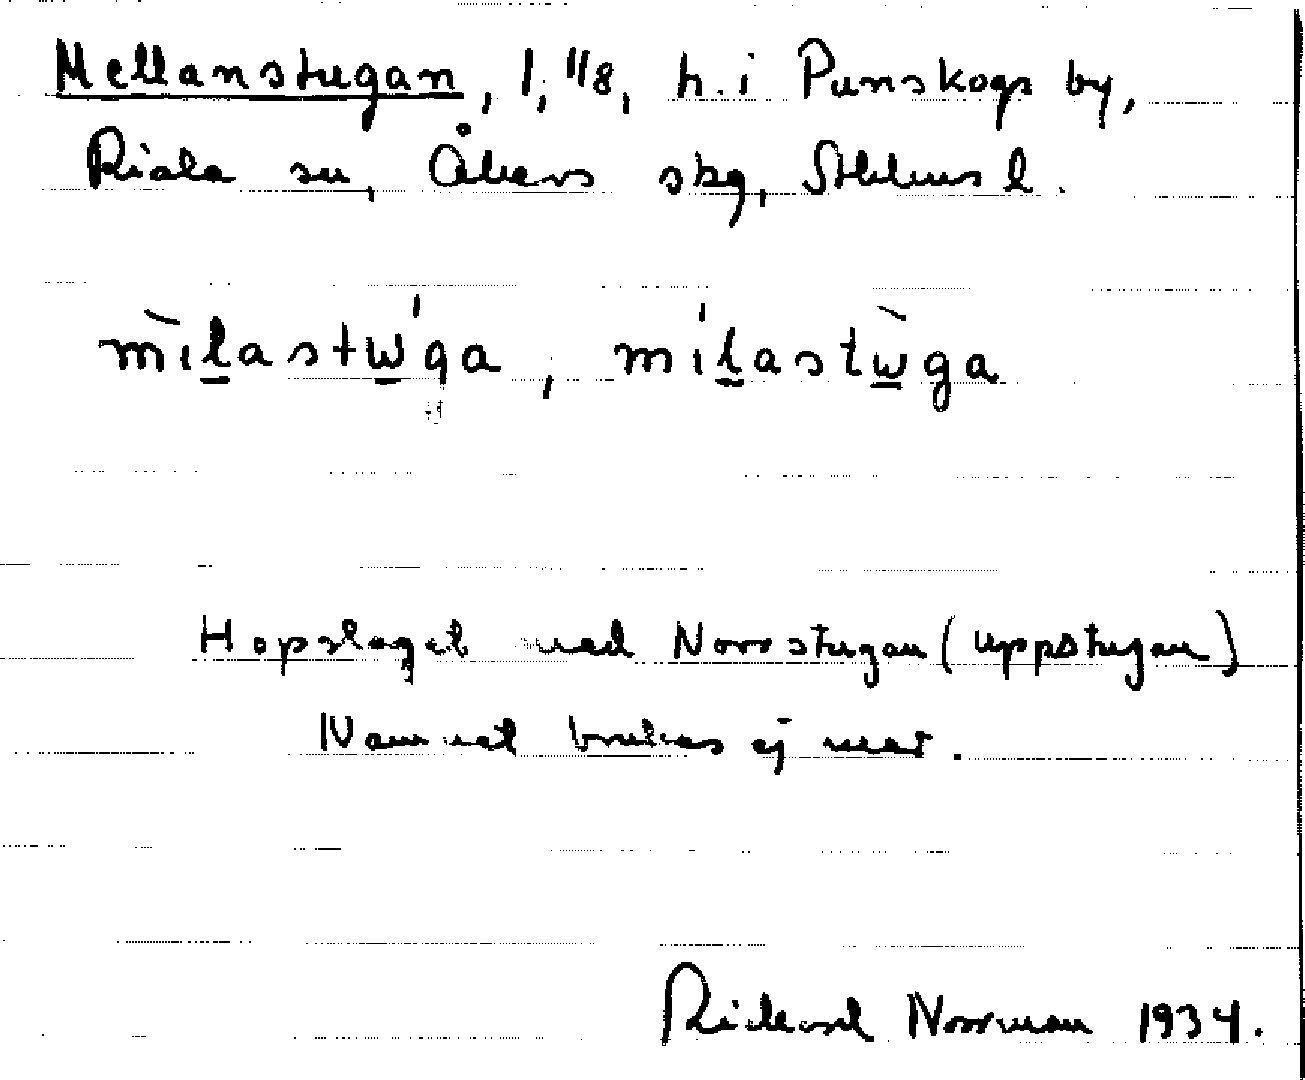 Mellanstugan, 1, 1/8, h. i Punskogs by,
Riala sn, Åkers skg, Sthlms l.
mìlastẃga, mílastẁga
Hopslaget med Norrstugan (Uppstugan)
Namnet brukas ej mer.
Rickard Norrman 1934.